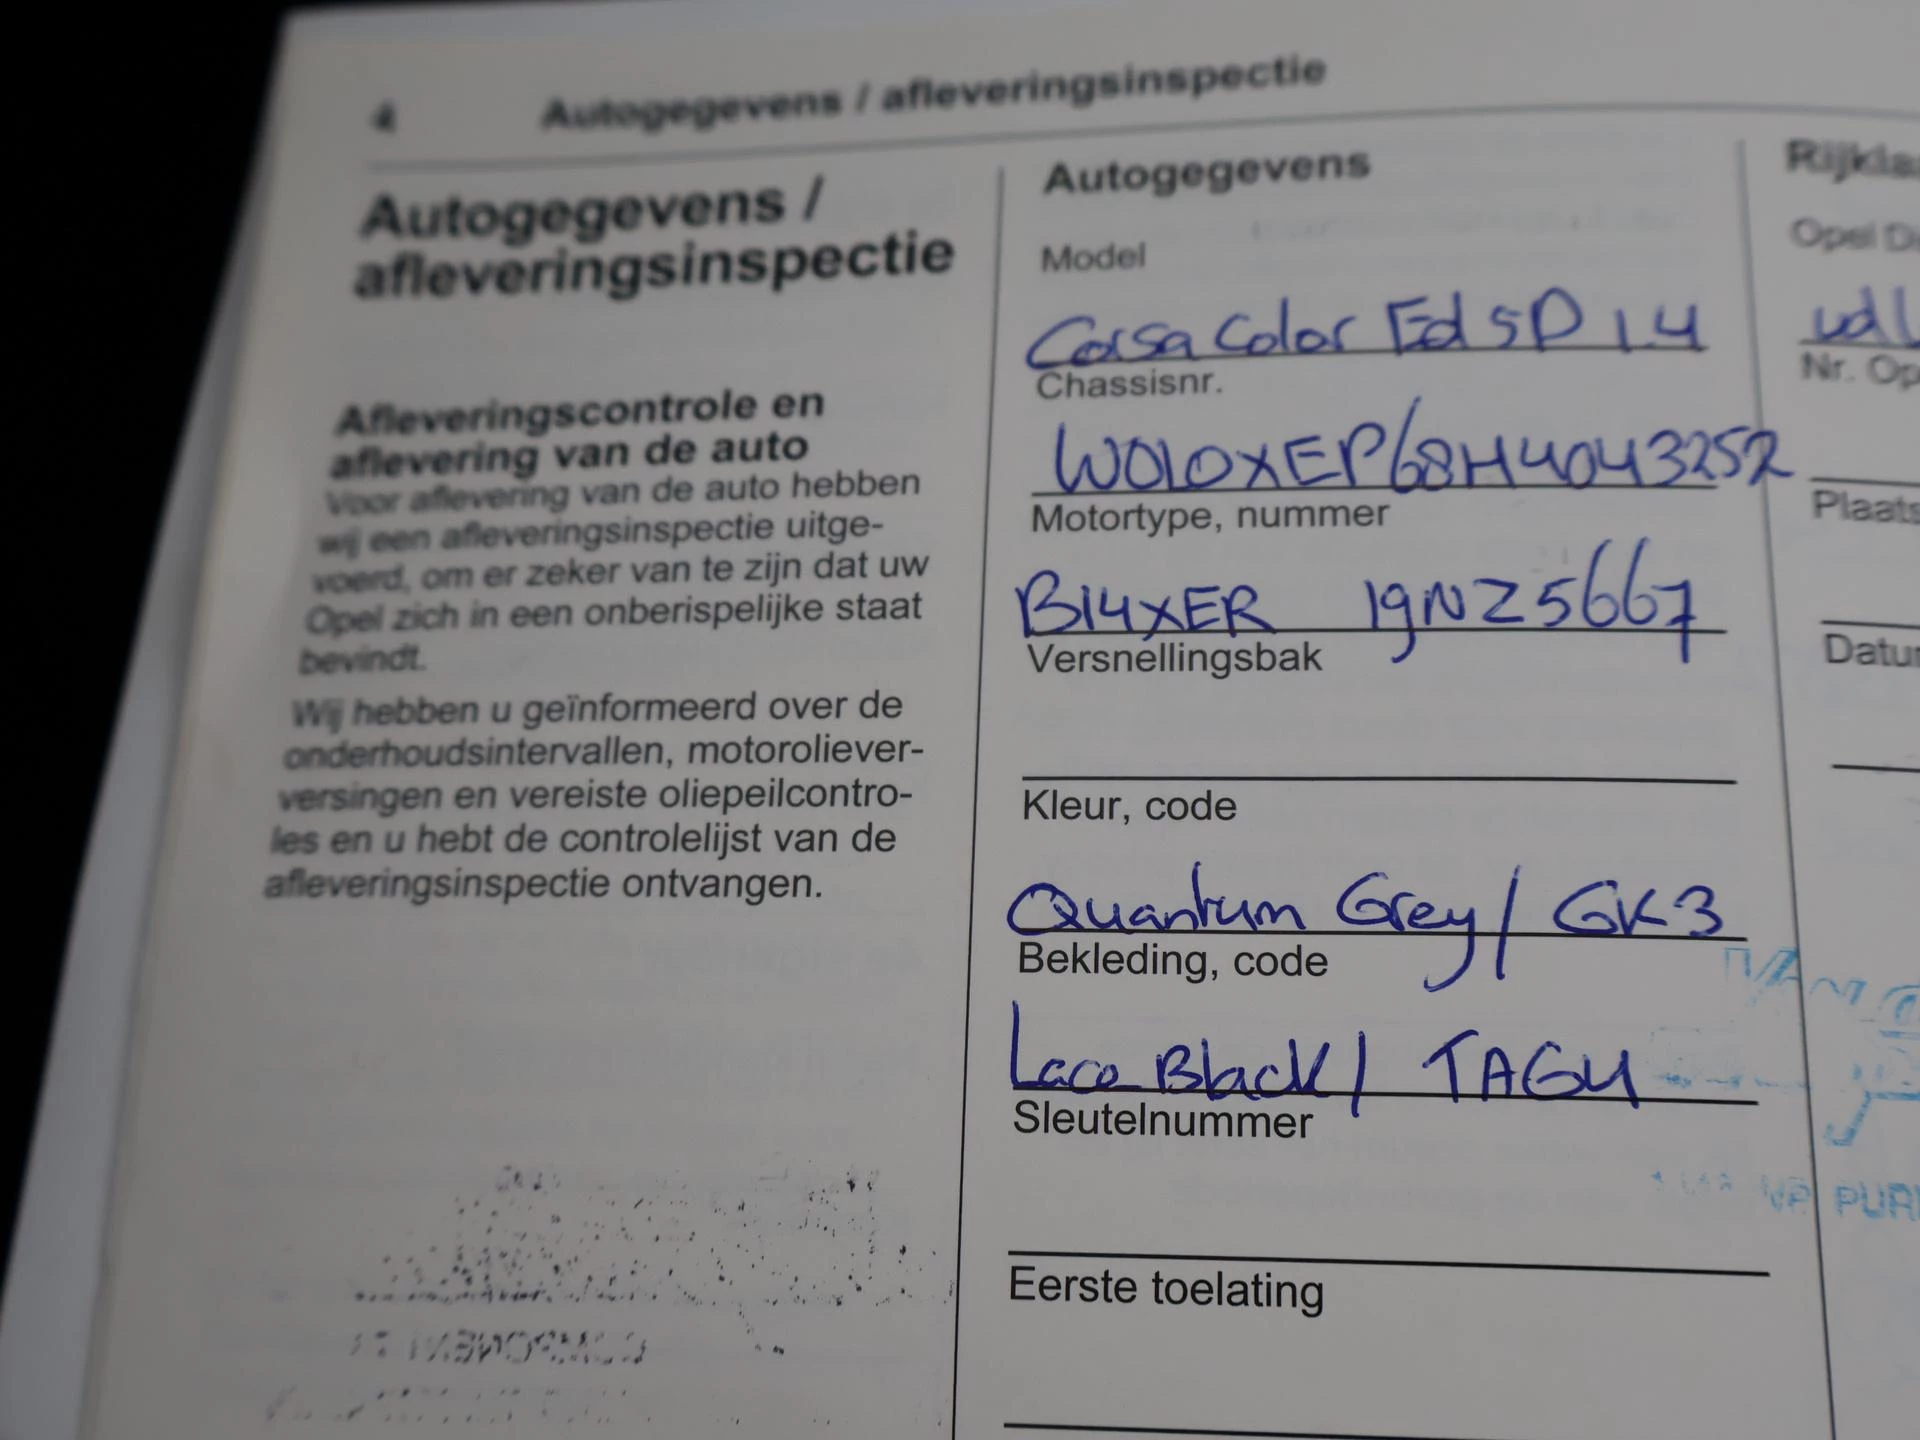 4 Autogegevens / afleveringsinspectie
Autogegevens /
afleveringsinspectie
Afleveringscontrole en
aflevering van de auto
Voor aflevering van de auto hebben
wij een afleveringsinspectie uitge-
voerd, om er zeker van te zijn dat uw
Opel zich in een onberispelijke staat
bevindt.
Wij hebben u geïnformeerd over de
onderhoudsintervallen, motoroliever-
versingen en vereiste oliepeilcontro-
les en u hebt de controlelijst van de
afleveringsinspectie ontvangen.
Autogegevens
Model
Corsa Color Ed 5D 1.4
Chassisnr.
W0L0XEP68H4043252
Motortype, nummer
B14XER 19NZ5667
Versnellingsbak
Kleur, code
Quantum Grey / GK3
Bekleding, code
Lace Black / TAGU
Sleutelnummer
Eerste toelating
Opel
Nr. Op
Plaats
Datu
VAN
PUR